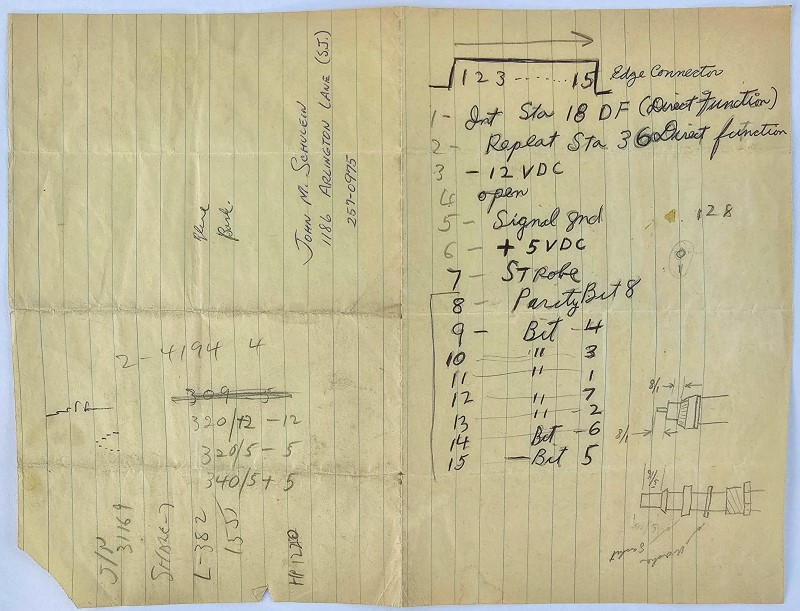 JOHN M. SCHULEIN
1186 ARLINGTON LANE (S.J.)
257-0975
2-4194 4
309 5
320/12 -12
320/5 - 5
340/5 + 5
31169
L-382
155
1 2 3 ........ 15 Edge Connector
1- Int Sta 18 DF (Direct Function)
2- Repeat Sta 36 Direct function
3 - 12 VDC
4 open
5- Signal gnd
6 - + 5 VDC
7 - STRobe
8 - Parity Bit 8
9 - Bit -4
10 " 3
11 " 1
12 " 7
13 " -2
14 Bit -6
15 - Bit 5
128
1/8
1/8
5/16